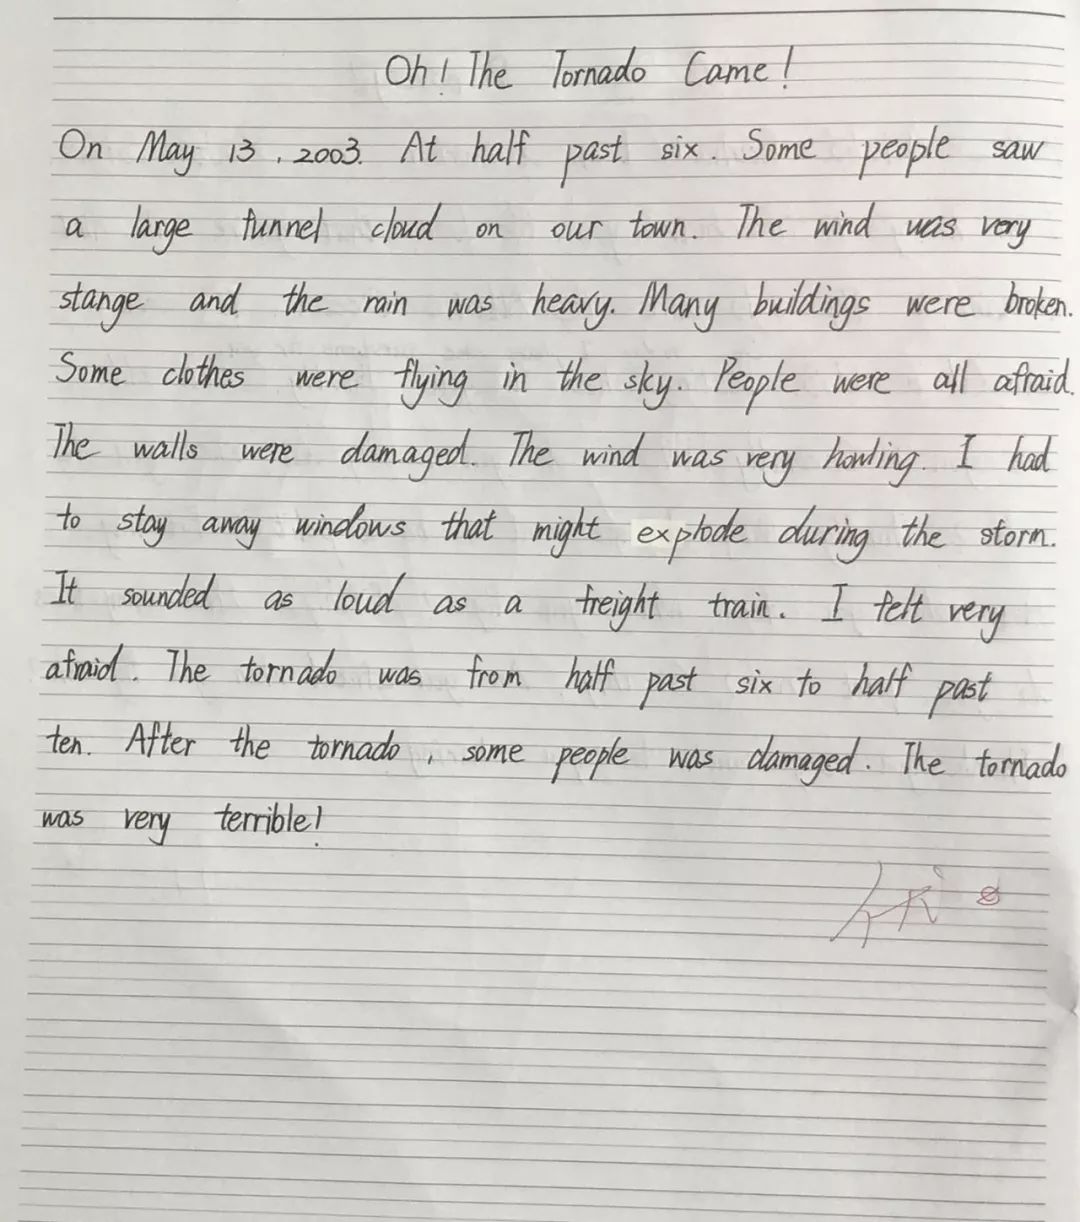 Oh! The Tornado Came!
On May 13, 2003. At half past six. Some people saw
a large funnel cloud on our town. The wind was very
stange and the rain was heavy. Many buildings were broken.
Some clothes were flying in the sky. People were all afraid.
The walls were damaged. The wind was very howling. I had
to stay away windows that might explode during the storm.
It sounded as loud as a freight train. I felt very
afraid. The tornado was from half past six to half past
ten. After the tornado, some people was damaged. The tornado
was very terrible!